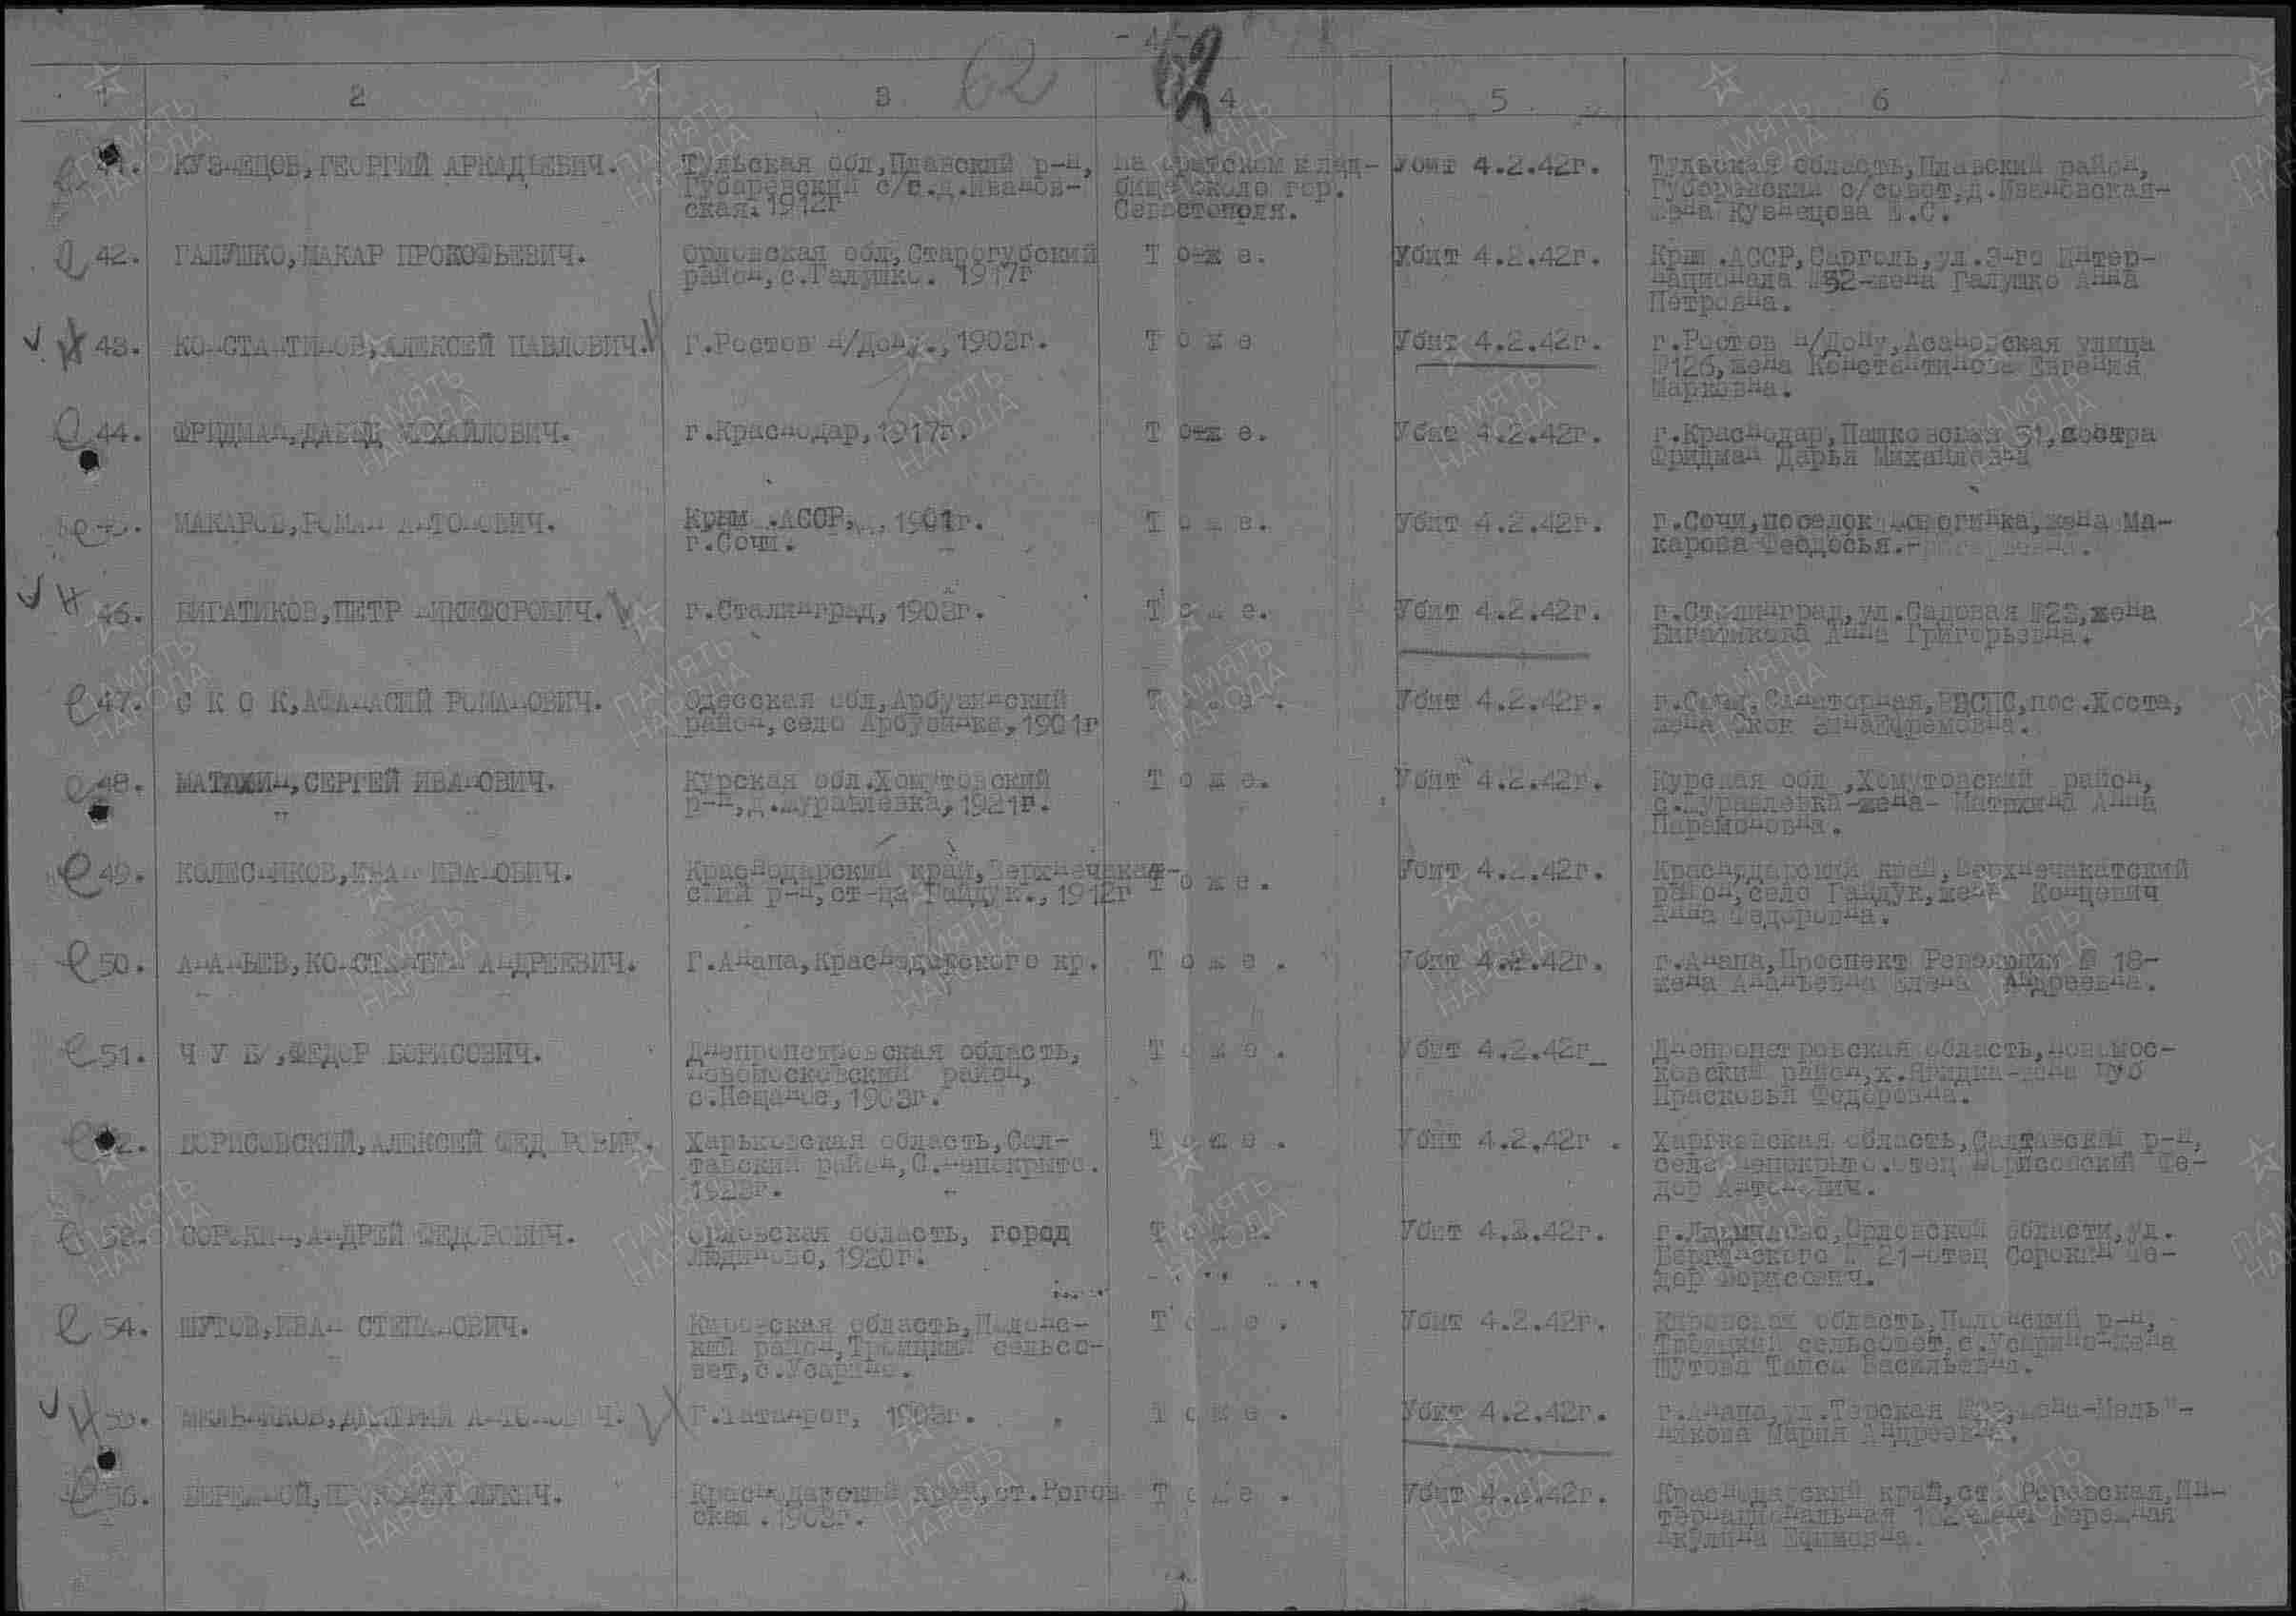 - 4 -
62
1 2 3 4 5 6
41. КУЗНЕЦОВ, ГЕОРГИЙ АРКАДЬЕВИЧ. Тульская обл, Плавский р-н, На братском клад- Убит 4.2.42г. Тульская область, Плавский район,
Губаревский с/с.д.Иванов- бище около гор. Губаревский с/совет, д.Ивановская-
ская. 1912г Севастополя. жена Кузнецова
42. ГАЛУШКО, МАКАР ПРОКОФЬЕВИЧ. Орловская обл, Старогубский Т о-ж е. Убит 4.2.42г. Крым.АССР, Сарголь, ул.3-го Интер-
район, с.Галушко. 1917г национала №52-жена Галушко Анна
Петровна.
43. КОНСТАНТИНОВ, АЛЕКСЕЙ ПАВЛОВИЧ. г.Ростов н/Дону., 1903г. Т о ж е Убит 4.2.42г. г.Ростов н/Дону, улица
№126, жена Константинова Евгения
Марковна.
44. ФРИДМАН, ДАВЫД МИХАЙЛОВИЧ. г.Краснодар, 1917г. Т о-ж е. Убит 4.2.42г. г.Краснодар, Пашковская 31, сестра
Фридман Дарья Михайловна
МАКАРОВ, РОМАН АНТОНОВИЧ. Крым.АССР, 1901г. Т о ж е. Убит 4.2.42г. г.Сочи, поселок жена Ма-
г.Сочи. карова Феодосья.-
46. БИГАТИКОВ, ПЕТР НИКИФОРОВИЧ. г.Сталинград, 1903г. Т о ж е. Убит 4.2.42г. г.Сталинград, ул.Садовая №23, жена
Бигатикова Анна Григорьевна.
47. С К О К, АФАНАСИЙ РОМАНОВИЧ. Одесская обл, Арбузинский Т о ж е. Убит 4.2.42г. г.Сочи, Санаторная, ВЦСПС, пос.Хоста,
район, село Арбузинка, 1901г жена Скок Ефремовна.
48. МАТЮХИН, СЕРГЕЙ ИВАНОВИЧ. Курская обл.Хомутовский Т о ж е. Убит 4.2.42г. Курская обл, Хомутовский район,
р-н, д.Журавлевка, 1921г. с.Журавлевка-жена- Матюхина Анна
Парамоновна.
49. КОЛЕСНИКОВ, ИВАН ИВАНОВИЧ. Краснодарский край, Верхнечакат- Т о ж е. Убит 4.2.42г. Краснодарский край, Верхнечакатский
ский р-н, ст-ца Гайдук., 1912г район, село Гайдук, жена Концевич
Анна Федоровна.
50. АНАНЬЕВ, КОНСТАНТИН АНДРЕЕВИЧ. Г.Анапа, Краснодарского кр. Т о ж е. Убит 4.2.42г. г.Анапа, Проспект Революции № 18-
жена Ананьевна Елена Андреевна.
51. Ч У Б, ФЕДОР БОРИСОВИЧ. Днепропетровская область, Т о ж е. Убит 4.2.42г_ Днепропетровская область, Новомос-
Новомосковский район, ковский район, жена Чуб
с.Пещаное, 1903г. Прасковья Федоровна.
БОРИСОВСКИЙ, АЛЕКСЕЙ ФЕДОРОВИЧ. Харьковская область, Сал- Т о ж е. Убит 4.2.42г. Харьковская область, Салтавский р-н,
тавский район, С.Непокрыто. село Непокрыто.отец Борисовский Фе-
1923г. дор Антонович.
СОРОКИН, АНДРЕЙ ФЕДОРОВИЧ. Орловская область, город Т о ж е. Убит 4.2.42г. г.Людиново, Орловской области, ул.
Людиново, 1920г. № 21-отец Сорокин Фе-
дор Борисович.
54. ШУТОВ, ИВАН СТЕПАНОВИЧ. Кировская область, Т о ж е. Убит 4.2.42г. Кировская область, р-н,
кий район, Троицкий сельсо- Троицкий сельсовет, жена
вет, Шутова Васильевна.
МЕЛЬНИКОВ, ДМИТРИЙ АНТОНОВИЧ. Г.Таганрог, 1903г. Т о ж е. Убит 4.2.42г. г.Анапа, ул.Терская жена-Мель-
никова Мария Андреевна.
56. БЕРЕЖНОЙ, Краснодарский край, ст.Рогов- Т о ж е. Убит 4.2.42г. Краснодарский край, ст. Роговская, Ин-
ская.1903г. тернациональная жена Бережная
Акулина Ефимовна.
ПАМЯТЬ НАРОДА